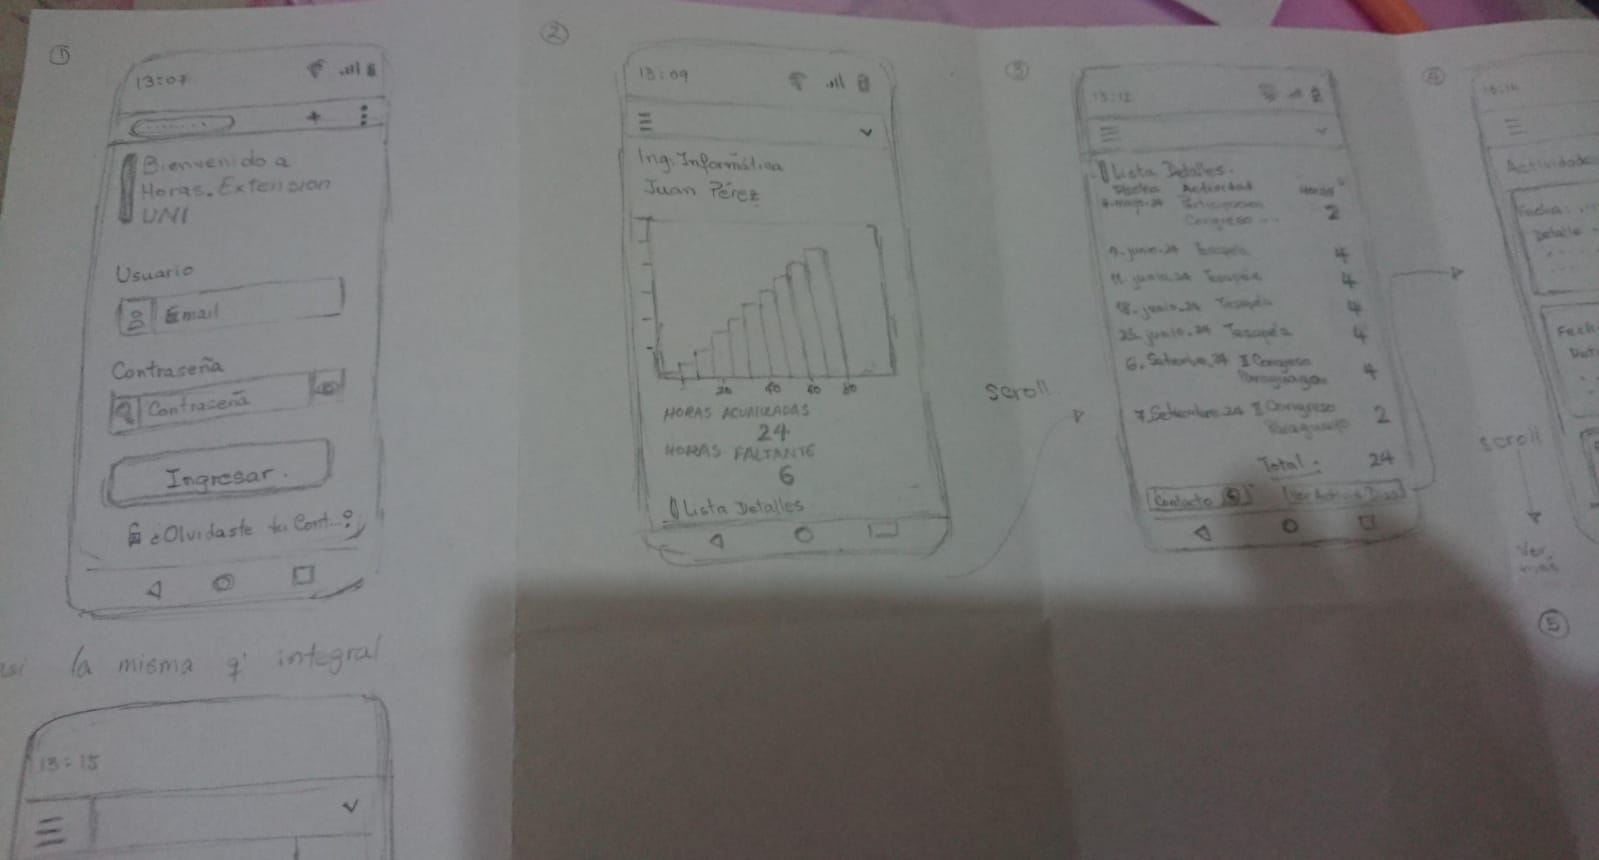 ①
13:07
+
Bienvenido a
Horas.Extension
UNI
Usuario
Email
Contraseña
Contraseña
Ingresar.
¿Olvidaste tu Cont...?
la misma q' integral
13:15
②
13:09
Ing. Informática
Juan Pérez
20 40 60 80
HORAS ACUMULADAS
24
HORAS FALTANTE
6
Lista Detalles
scroll
③
13:12
Lista Detalles.
Fecha Actividad Horas
Participacion
Congreso ... 2
junio.24 4
11 junio.24 4
18.junio.24 4
25 junio.24 4
6. Setiembre.24 I Congreso
Paraguayo 4
7.Setiembre.24 I Congreso
Paraguayo 2
Total: 24
Contacto
④
Actividade
Fecha: ...
Detalle
Fech
scroll
Ver
más
⑤